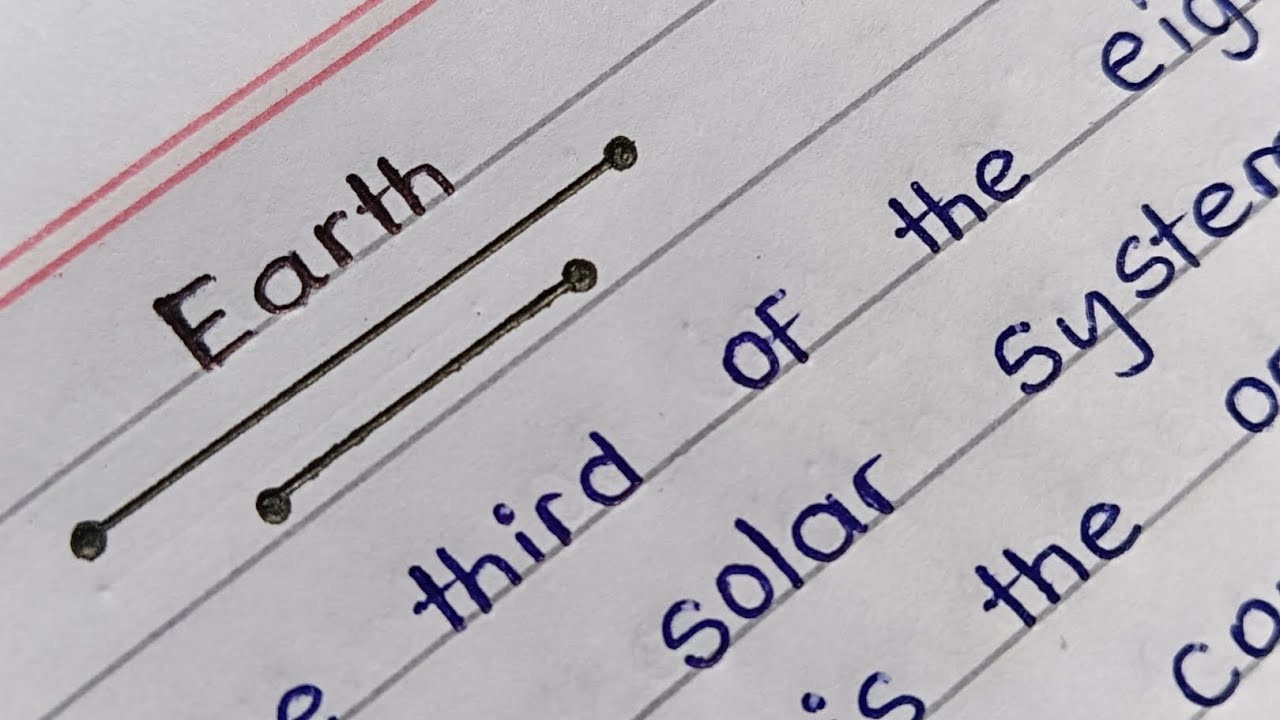 Earth
third of the
solar system
is the